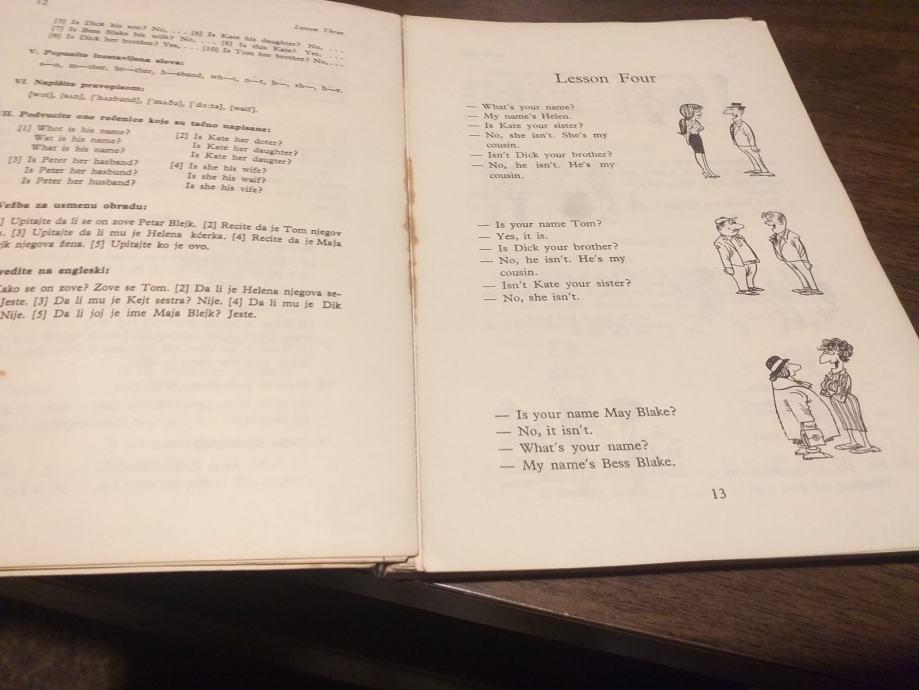 12
Lesson Three
[5] Is Dick his son? No, ... [6] Is Kate his daughter? No, ...
[7] Is Bess Blake his wife? No, ... [8] Is this Kate? Yes, ...
[9] Is Dick her brother? Yes, ... [10] Is Tom her brother? No, ...
V. Popunite izostavljena slova:
s—n, m—ther, br—ther, h—sband, wh—t, n—t, h—, sh—, h—r.
VI. Napišite pravopisom:
[wɔt], [sʌn], ['hʌzbənd], ['mʌðə], ['dɔ:tə], [waif].
II. Podvucite one rečenice koje su tačno napisane:
[1] Whot is his name?
Wat is his name?
What is his name?
[2] Is Kate her doter?
Is Kate her daughter?
Is Kate her daugter?
[3] Is Peter her hasband?
Is Peter her hasbund?
Is Peter her husband?
[4] Is she his wife?
Is she his waif?
Is she his vife?
Vežba za usmenu obradu:
] Upitajte da li se on zove Petar Blejk. [2] Recite da je Tom njegov
. [3] Upitajte da li mu je Helena kćerka. [4] Recite da je Maja
jk njegova žena. [5] Upitajte ko je ovo.
vedite na engleski:
ako se on zove? Zove se Tom. [2] Da li je Helena njegova se-
Jeste. [3] Da li mu je Kejt sestra? Nije. [4] Da li mu je Dik
Nije. [5] Da li joj je ime Maja Blejk? Jeste.
Lesson Four
— What's your name?
— My name's Helen.
— Is Kate your sister?
— No, she isn't. She's my
cousin.
— Isn't Dick your brother?
— No, he isn't. He's my
cousin.
— Is your name Tom?
— Yes, it is.
— Is Dick your brother?
— No, he isn't. He's my
cousin.
— Isn't Kate your sister?
— No, she isn't.
— Is your name May Blake?
— No, it isn't.
— What's your name?
— My name's Bess Blake.
13